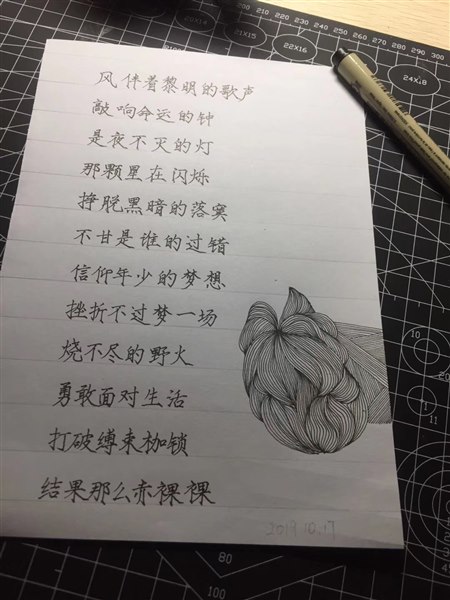 风伴着黎明的歌声
敲响命运的钟
是夜不灭的灯
那颗星在闪烁
挣脱黑暗的落寞
不甘是谁的过错
信仰年少的梦想
挫折不过梦一场
烧不尽的野火
勇敢面对生活
打破缚束枷锁
结果那么赤裸裸
2019.10.17
21X15
22X16
24X18
200 210 220 230 240 250 260 270 280 290 300
10
20
1
11
80
100